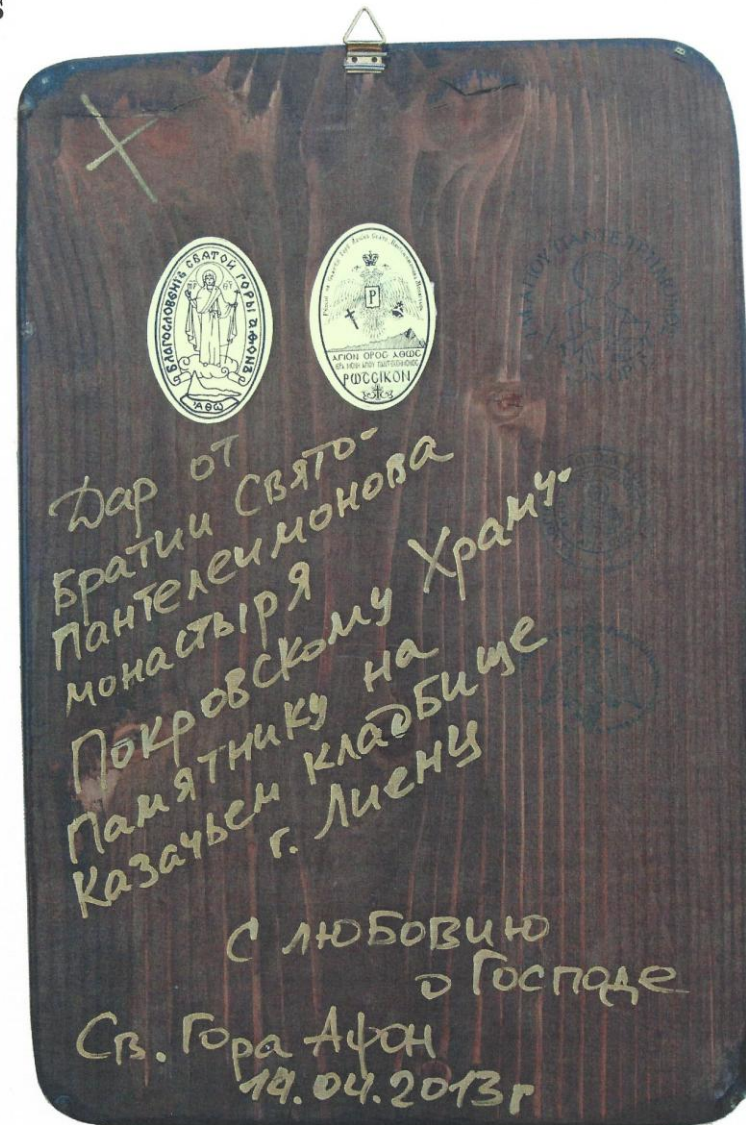 s
БЛАГОСЛОВЕНІЕ СВЯТОЙ ГОРЫ АФОНА
ἌΘΩ
Р
ΑΓΙΟΝ ΟΡΟΣ ΑΘΩΣ
ΡΩΣΣΙΚΟΝ
Дар от
Братии Свято-
Пантелеимонова
монастыря
Покровскому Храму-
Памятнику на
Казачьем кладбище
г. Лиенц
С любовию
о Господе
Св. Гора Афон
14.04.2013г